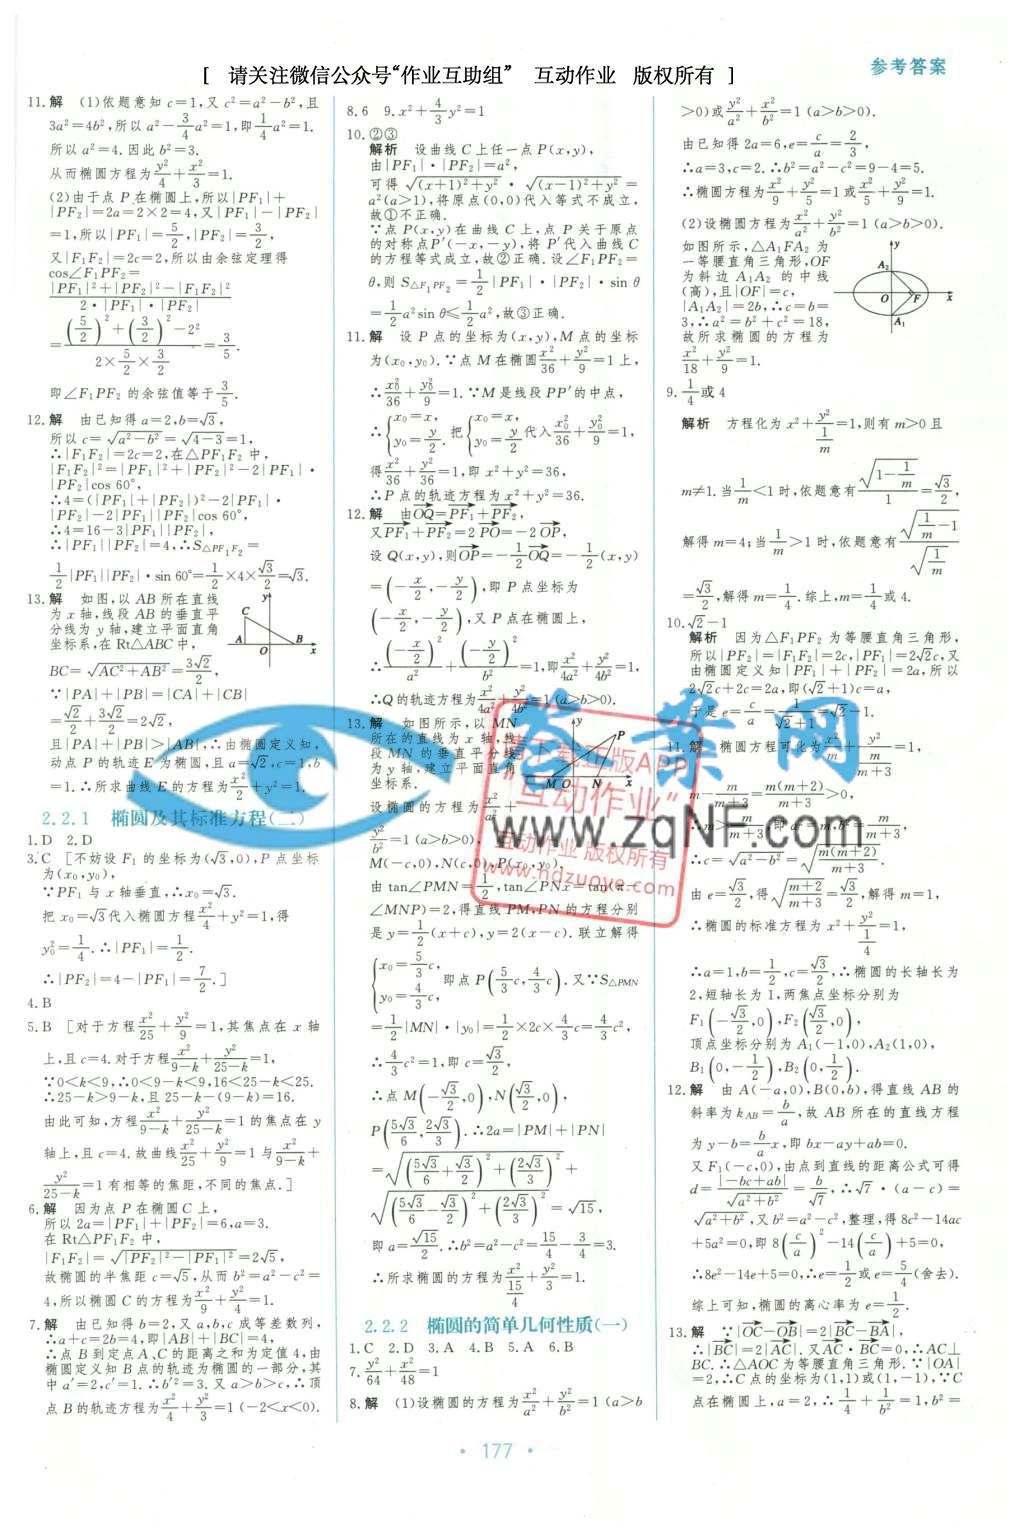 [ 请关注微信公众号“作业互助组” 互动作业 版权所有 ]
参考答案
11.解 (1)依题意知c=1,又c²=a²-b²,且
3a²=4b²,所以a²-3/4a²=1,即1/4a²=1.
所以a²=4.因此b²=3.
从而椭圆方程为x²/4+y²/3=1.
(2)由于点P在椭圆上,所以|PF₁|+
|PF₂|=2a=2×2=4,又|PF₁|-|PF₂|
=1,所以|PF₁|=5/2,|PF₂|=3/2,
又|F₁F₂|=2c=2,所以由余弦定理得
cos∠F₁PF₂=
(|PF₁|²+|PF₂|²-|F₁F₂|²)/(2·|PF₁|·|PF₂|)
=((5/2)²+(3/2)²-2²)/(2×5/2×3/2)=3/5.
即∠F₁PF₂的余弦值等于3/5.
12.解 由已知得a=2,b=√3,
所以c=√(a²-b²)=√(4-3)=1,
∴|F₁F₂|=2c=2,在△PF₁F₂中,
|F₁F₂|²=|PF₁|²+|PF₂|²-2|PF₁|·
|PF₂|cos 60°,
∴4=(|PF₁|+|PF₂|)²-2|PF₁|·
|PF₂|-2|PF₁||PF₂|cos 60°,
∴4=16-3|PF₁||PF₂|,
∴|PF₁||PF₂|=4,∴S△PF₁F₂=
1/2|PF₁||PF₂|·sin 60°=1/2×4×√3/2=√3.
13.解 如图,以AB所在直线
为x轴,线段AB的垂直平
分线为y轴,建立平面直角
坐标系,在Rt△ABC中,
C y A O B x
BC=√(AC²+AB²)=3√2/2,
∵|PA|+|PB|=|CA|+|CB|
=√2/2+3√2/2=2√2,
且|PA|+|PB|>|AB|,∴由椭圆定义知,
动点P的轨迹E为椭圆,且a=√2,c=1,b
=1.∴所求曲线E的方程为x²/2+y²=1.
2.2.1 椭圆及其标准方程(二)
1.D 2.D
3.C [不妨设F₁的坐标为(√3,0),P点坐标
为(x₀,y₀),
∵PF₁与x轴垂直,∴x₀=√3.
把x₀=√3代入椭圆方程x²/4+y²=1,得
y₀²=1/4.∴|PF₁|=1/2.
∴|PF₂|=4-|PF₁|=7/2.]
4.B
5.B [对于方程x²/25+y²/9=1,其焦点在x轴
上,且c=4.对于方程x²/(9-k)+y²/(25-k)=1,
∵0<k<9,∴0<9-k<9,16<25-k<25.
∴25-k>9-k,且25-k-(9-k)=16.
由此可知,方程x²/(9-k)+y²/(25-k)=1的焦点在y
轴上,且c=4.故曲线x²/25+y²/9=1与x²/(9-k)+
y²/(25-k)=1有相等的焦距,不同的焦点.]
6.解 因为点P在椭圆C上,
所以2a=|PF₁|+|PF₂|=6,a=3.
在Rt△PF₁F₂中,
|F₁F₂|=√(|PF₂|²-|PF₁|²)=2√5,
故椭圆的半焦距c=√5,从而b²=a²-c²=
4,所以椭圆C的方程为x²/9+y²/4=1.
7.解 由已知得b=2,又a,b,c成等差数列,
∴a+c=2b=4,即|AB|+|BC|=4,
∴点B到定点A、C的距离之和为定值4,由
椭圆定义知B点的轨迹为椭圆的一部分,其
中a′=2,c′=1.∴b′²=3.又a>b>c,∴顶
点B的轨迹方程为x²/4+y²/3=1(-2<x<0).
8.6 9.x²+4/3y²=1
10.②③
解析 设曲线C上任一点P(x,y),
由|PF₁|·|PF₂|=a²,
可得√((x+1)²+y²)·√((x-1)²+y²)=
a²(a>1),将原点(0,0)代入等式不成立,
故①不正确.
∵点P(x,y)在曲线C上,点P关于原点
的对称点P′(-x,-y),将P′代入曲线C
的方程等式成立,故②正确.设∠F₁PF₂=
θ,则S△F₁PF₂=1/2|PF₁|·|PF₂|·sin θ
=1/2a²sin θ≤1/2a²,故③正确.
11.解 设P点的坐标为(x,y),M点的坐标
为(x₀,y₀).∵点M在椭圆x²/36+y²/9=1上,
∴x₀²/36+y₀²/9=1.∵M是线段PP′的中点,
∴{x₀=x, y₀=y/2. 把{x₀=x, y₀=y/2 代入x₀²/36+y₀²/9=1,
得x²/36+y²/36=1,即x²+y²=36,
∴P点的轨迹方程为x²+y²=36.
12.解 由OQ=PF₁+PF₂,
又PF₁+PF₂=2PO=-2OP,
设Q(x,y),则OP=-1/2OQ=-1/2(x,y)
=(-x/2,-y/2),即P点坐标为
(-x/2,-y/2),又P点在椭圆上,
∴(-x/2)²/a²+(-y/2)²/b²=1,即x²/4a²+y²/4b²=1,
∴Q的轨迹方程为x²/4a²+y²/4b²=1(a>b>0).
13.解 如图所示,以MN
所在的直线为x轴,线
段MN的垂直平分线
为y轴,建立平面直角
坐标系.
y P M O N x
设椭圆方程为x²/a²+
y²/b²=1(a>b>0),
M(-c,0),N(c,0),P(x₀,y₀).
由tan∠PMN=1/2,tan∠PNx=tan(π-
∠MNP)=2,得直线PM,PN的方程分别
是y=1/2(x+c),y=2(x-c).联立解得
{x₀=5/3c, y₀=4/3c, 即点P(5/3c,4/3c).又∵S△PMN
=1/2|MN|·|y₀|=1/2×2c×4/3c=4/3c²,
∴4/3c²=1,即c=√3/2,
∴点M(-√3/2,0),N(√3/2,0),
P(5√3/6,2√3/3).∴2a=|PM|+|PN|
=√((5√3/6+√3/2)²+(2√3/3)²)+
√((5√3/6-√3/2)²+(2√3/3)²)=√15,
即a=√15/2.∴b²=a²-c²=15/4-3/4=3.
∴所求椭圆的方程为x²/(15/4)+y²/3=1.
2.2.2 椭圆的简单几何性质(一)
1.C 2.D 3.A 4.B 5.A 6.B
7.y²/64+x²/48=1
8.解 (1)设椭圆的方程为x²/a²+y²/b²=1(a>b
>0)或y²/a²+x²/b²=1(a>b>0).
由已知得2a=6,e=c/a=2/3,
∴a=3,c=2.∴b²=a²-c²=9-4=5.
∴椭圆方程为x²/9+y²/5=1或x²/5+y²/9=1.
(2)设椭圆方程为x²/a²+y²/b²=1(a>b>0).
如图所示,△A₁FA₂为
一等腰直角三角形,OF
为斜边A₁A₂的中线
(高),且|OF|=c,
|A₁A₂|=2b,∴c=b=
3,∴a²=b²+c²=18,
故所求椭圆的方程为
x²/18+y²/9=1.
y A₂ O F x A₁
9.1/4或4
解析 方程化为x²+y²/(1/m)=1,则有m>0且
m≠1.当1/m<1时,依题意有√(1-1/m)/1=√3/2,
解得m=4;当1/m>1时,依题意有√(1/m-1)/√(1/m)
=√3/2,解得m=1/4.综上,m=1/4或4.
10.√2-1
解析 因为△F₁PF₂为等腰直角三角形,
所以|PF₂|=|F₁F₂|=2c,|PF₁|=2√2c,又
由椭圆定义知|PF₁|+|PF₂|=2a,所以
2√2c+2c=2a,即(√2+1)c=a,
于是e=c/a=1/(√2+1)=√2-1.
11.解 椭圆方程可化为x²/m+y²/(m/(m+3))=1,
m-m/(m+3)=m(m+2)/(m+3)>0,∴m>m/(m+3).
∴c=√(a²-b²)=√(m(m+2)/(m+3)).
由e=√3/2,得√((m+2)/(m+3))=√3/2,解得m=1,
∴椭圆的标准方程为x²+y²/(1/4)=1,
∴a=1,b=1/2,c=√3/2,∴椭圆的长轴长为
2,短轴长为1,两焦点坐标分别为
F₁(-√3/2,0),F₂(√3/2,0),
顶点坐标分别为A₁(-1,0),A₂(1,0),
B₁(0,-1/2),B₂(0,1/2).
12.解 由A(-a,0),B(0,b),得直线AB的
斜率为kAB=b/a,故AB所在的直线方程
为y-b=b/a x,即bx-ay+ab=0.
又F₁(-c,0),由点到直线的距离公式可得
d=|-bc+ab|/√(a²+b²)=b/√7,∴√7·(a-c)=
√(a²+b²),又b²=a²-c²,整理,得8c²-14ac
+5a²=0,即8(c/a)²-14(c/a)+5=0,
∴8e²-14e+5=0,∴e=1/2或e=5/4(舍去).
综上可知,椭圆的离心率为e=1/2.
13.解 ∵|OC-OB|=2|BC-BA|,
∴|BC|=2|AC|.又AC·BC=0,∴AC⊥
BC.∴△AOC为等腰直角三角形.∵|OA|
=2,∴C点的坐标为(1,1)或(1,-1),∵C
点在椭圆上,a=2,∴1/4+1/b²=1,b²=
· 177 ·
答案网
www.zqNF.com
请下载正版APP
“互动作业”
互动作业 版权所有
www.hdzuoye.com